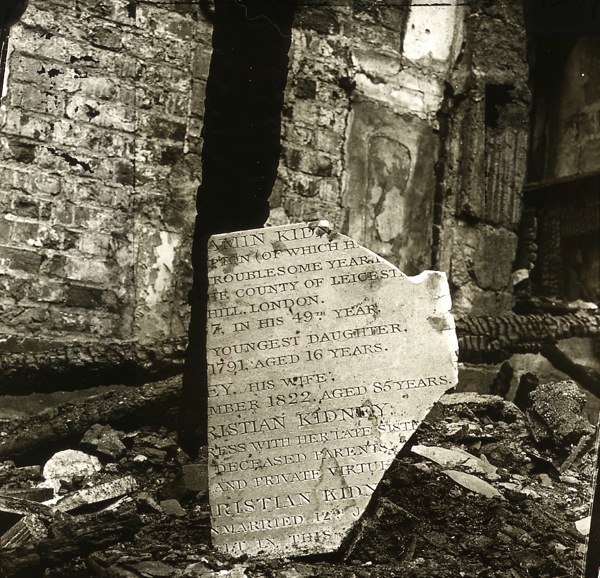 AMIN KID
TON (OF WHICH H
TROUBLESOME YEAR.1
HE COUNTY OF LEICEST
HILL, LONDON.
7. IN HIS 49TH YEAR.
YOUNGEST DAUGHTER.
1791, AGED 16 YEARS.
EY, HIS WIFE.
MBER 1822, AGED 85 YEARS.
RISTIAN KIDNEY.
RESS WITH HER LATE SIST
DECEASED PARENTS,
AND PRIVATE VIRTU
RISTIAN KIDN
MARRIED 12TH J
T IN THIS